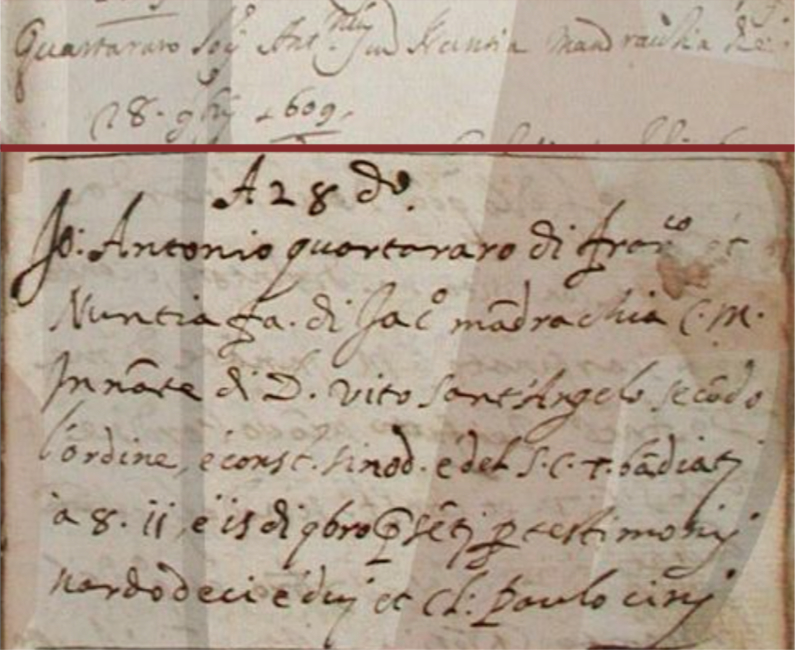 Quartararo Joñ Ant in Nuntia Mandrachia
28. 9brij 1609
A 28 do.
Jo: Antonio quartararo di franco et
Nuntia fa. di Jaco mãdrachia C. M.
In nãte di D. vito Sant'Angelo secõdo
l'ordine, è const. sinod. e del S. C. T. bãdiatj
a 8. 11, e is di qbro p̃sẽtj p testimonij
nardo deci e duj et Cl: paulo cirj